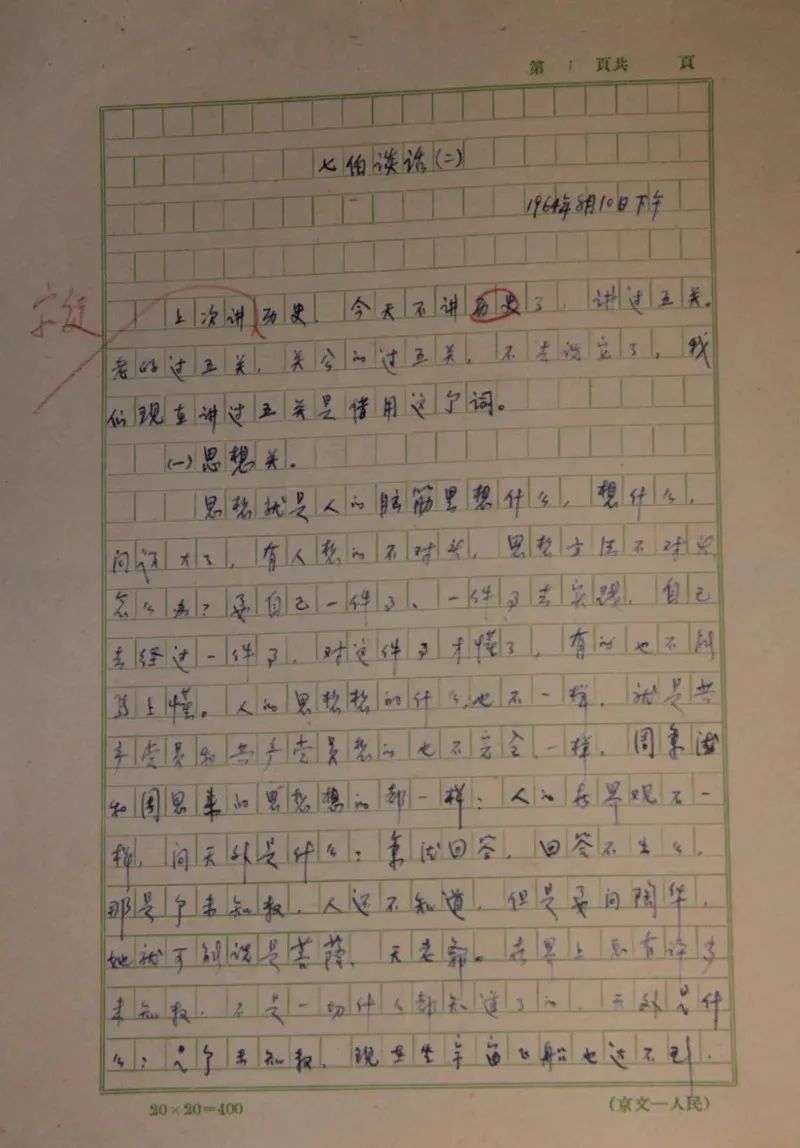 第 1 頁共 頁
七伯谈话(二)
1964年8月10日下午
上次讲历史,今天不讲历史了,讲过五关。
老的过五关,关公的过五关,不去谈它了,我
们现在讲过五关是借用这个词。
(一)思想关。
思想就是人的脑筋里想什么,想什么,
问题大了,有人想的不对头,思想方法不对头
怎么办?要自己一件了,一件了去实践,自己
去经过一件了,对这件了才懂了,有的也不能
马上懂。人的思想想的什么也不一样,就是共
产党员和共产党员想的也不完全一样,周秉德
和周恩来的思想想的都一样?人的世界观不一
样,问天外是什么?秉德回答,回答不出么,
那是个未知数,人还不知道,但是要问陶华,
她就可能说是菩萨,天老爷。世界上总有许多
未知数,不是一切什么都知道了的,天外是什
么?是个未知数,现在坐宇宙飞船也达不到,
20×20=400
(京文—人民)